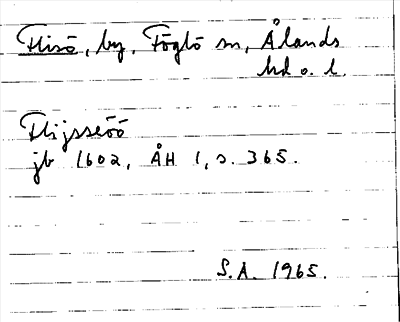 Flisö, by, Föglö sn, Ålands
hd o. l.
Flijsseöö
jb 1602, ÅH 1, s. 365.
S.A. 1965.